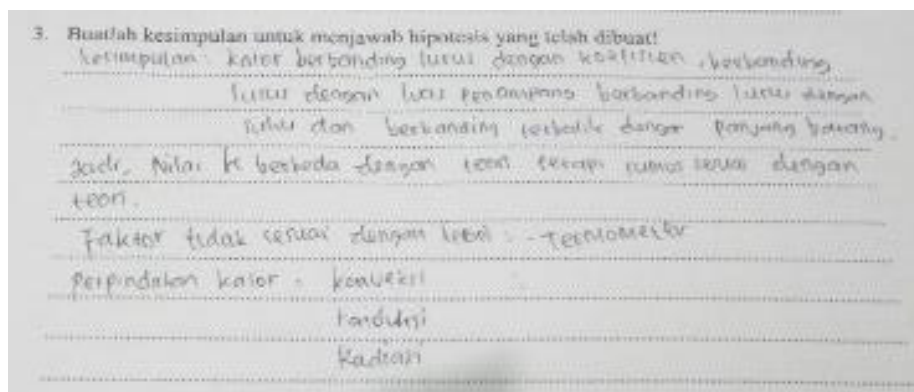 3. Buatlah kesimpulan untuk menjawab hipotesis yang telah dibuat!
Kesimpulan : Kalor berbanding lurus dengan koefisien, berbanding
lurus dengan luas penampang berbanding lurus dengan
suhu dan berbanding terbalik dengan panjang batang.
Jadi, Nilai k berbeda dengan teori tetapi rumus sesuai dengan
teori.
Faktor tidak sesuai dengan teori : - Termometer
Perpindahan kalor : konveksi
konduksi
Radiasi